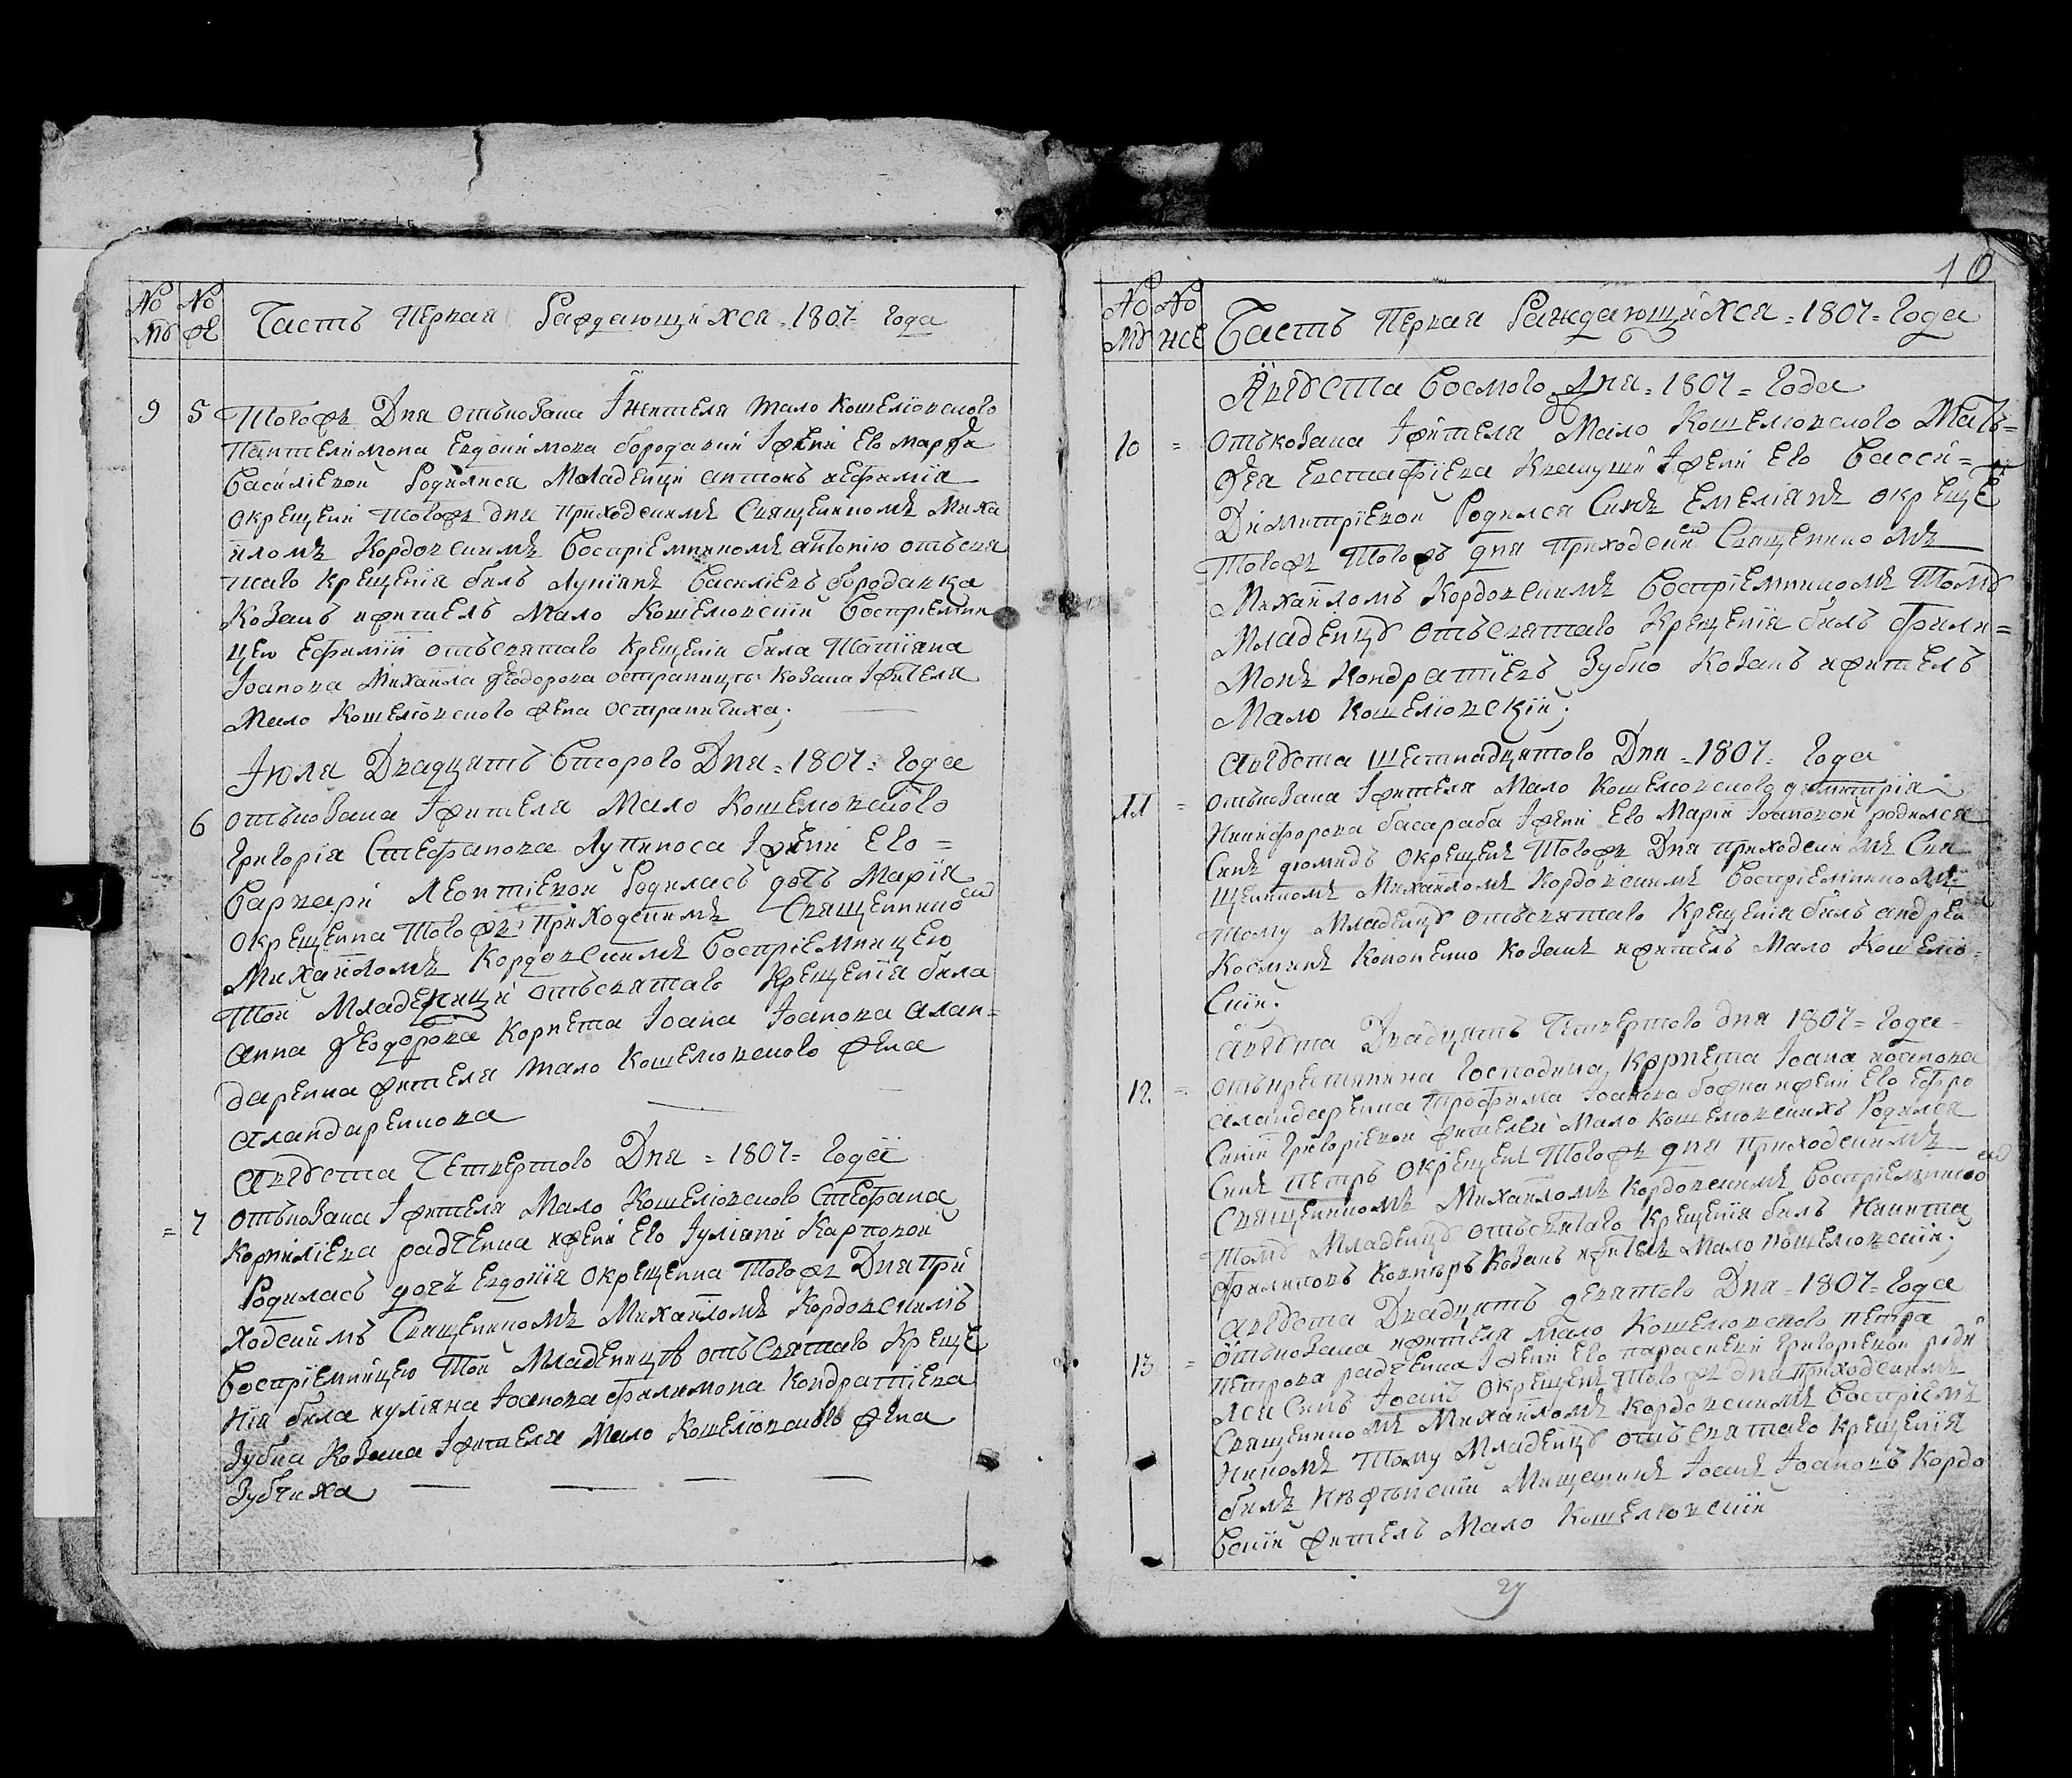 № № Часть Первая Раждающихся = 1807 = года
му же
9 5 Тогожъ Дня отъкозака Iжителя Мало Кошелювского
Пантелимона Евдокимова бородавки Iжени Его Марфи
Василiевой Родилися Младенци антонъ иефимiя
окрещени Тогожъ дня приходскимъ Священникомъ Миха
иломъ Кордовскимъ Воспрiемникомъ антонiю отъсвя
таго крещенiя билъ Лукiянъ Василiевъ бородавка
Козакъ ижитель Мало Кошелювскiй Воспрiемни
цею Ефимiй отъсвятаго Крещенiя била Татiяна
Iоанова Михаила Феодорова остраници Козака Iжителя
Мало Кошелювского жена остраничиха;
Iюля Двадцять Второго Дня = 1807 = года
6 отъкозака Iжителя Мало Кошелювского
Григорiя Стефанова Лупиноса Iжени Его =
Варвари Леонтiевой Родилась дочъ Марiя
окрещенна Тогожъ приходскимъ Священнико
Михайломъ Кордовскимъ Воспрiемницею
Той Младеници отъсвятаго Крещенiя била
анна Феодорова Корнета Iоана Iоанова алан=
даренка жителя Мало Кошелювского жена
аландаренкова
августа Четвертого Дня = 1807 = года
= 7 отъкозака Iжителя Мало Кошелювского Стефана
Корнилiева радченка ижени Его Iулiяни Карповой
Родилась дочъ Евдокiя окрещенна Тогожъ Дня при
ходскимъ Священникомъ Михайломъ Кордовскимъ
Воспрiемницею Той Младеницѣ отъСвятаго Креще
нiя била иулiяна Iоанова Филимона Кондратiева
Зубка Козака Iжителя Мало Кошелювскаго жена
Зубчиха
10
№ № Часть Первая Раждающихся = 1807 = года
му же
Августа Восмого Дня = 1807 = года
10 = отъкозака Iжителя Мало Кошелювского Мать=
фея Евстафiева Квашуни Iжени Его Васси=
Димитрiевой Родился Синъ Емелiянъ окреще
Тогожъ Тогожъ дня приходским Священникомъ
Михайломъ Кордовскимъ Воспрiемникомъ Тому
Младенцу отъсвятаго Крещенiя билъ Фили=
Монъ Кондратiевъ Зубко Козакъ ижитель
Мало Кошелювскiй;
августа Шестнадцятого Дня = 1807 = года
11 = отъкозака Iжителя Мало Кошелювского димитрiя
Никифорова басараба Iжени Его Марiи Iоановой родился
Синъ дiомидъ окрещенъ Тогожъ Дня приходскимъ Свя
щенникомъ Михайломъ Кордовскимъ Воспрiемникомъ
тому Младенцу отъсвятаго Крещенiя билъ андрей
Косминъ Кононенко Козакъ ижитель Мало Кошелю=
Скiй.
августа Двадцять Четвертого дня 1807 = года
12 = отъкрестянина Господина Корнета Iоана иоанова
аландаренка Трофима Iоанова ижени Его Ефро
Синiи Григорiевой жителей Мало Кошелювскихъ Родился
Синъ Петръ окрещенъ Тогожъ дня приходскимъ
Священникомъ Михайломъ Кордовскимъ Воспрiемнико
Тому Младенцу отъсвятаго Крещенiя билъ Никита
Филиповъ Козакъ ижитель Мало Кошелювскiй;
августа Двадцять девятого Дня = 1807 = года
13 = отъкозака ижителя Мало Кошелювского петра
Петрова радченка Iжени Его параскеви Григорiевой роди
лся Синъ Iоанъ окрещенъ Тогожъ дня приходскимъ
Священникомъ Михайломъ Кордовскимъ Воспрiем
никомъ Тому Младенцу отъСвятаго Крещенiя
билъ Нѣжинскiй Мищанинъ Iоанъ Iоановъ Кордо
Вскiй житель Мало Кошелювскiй